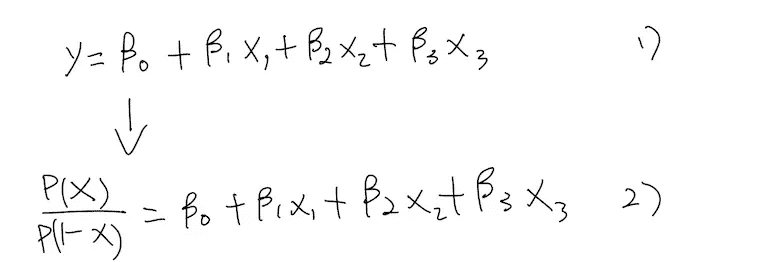 y = β₀ + β₁x₁ + β₂x₂ + β₃x₃ 1)
↓
P(X)/P(1-X) = β₀ + β₁x₁ + β₂x₂ + β₃x₃ 2)